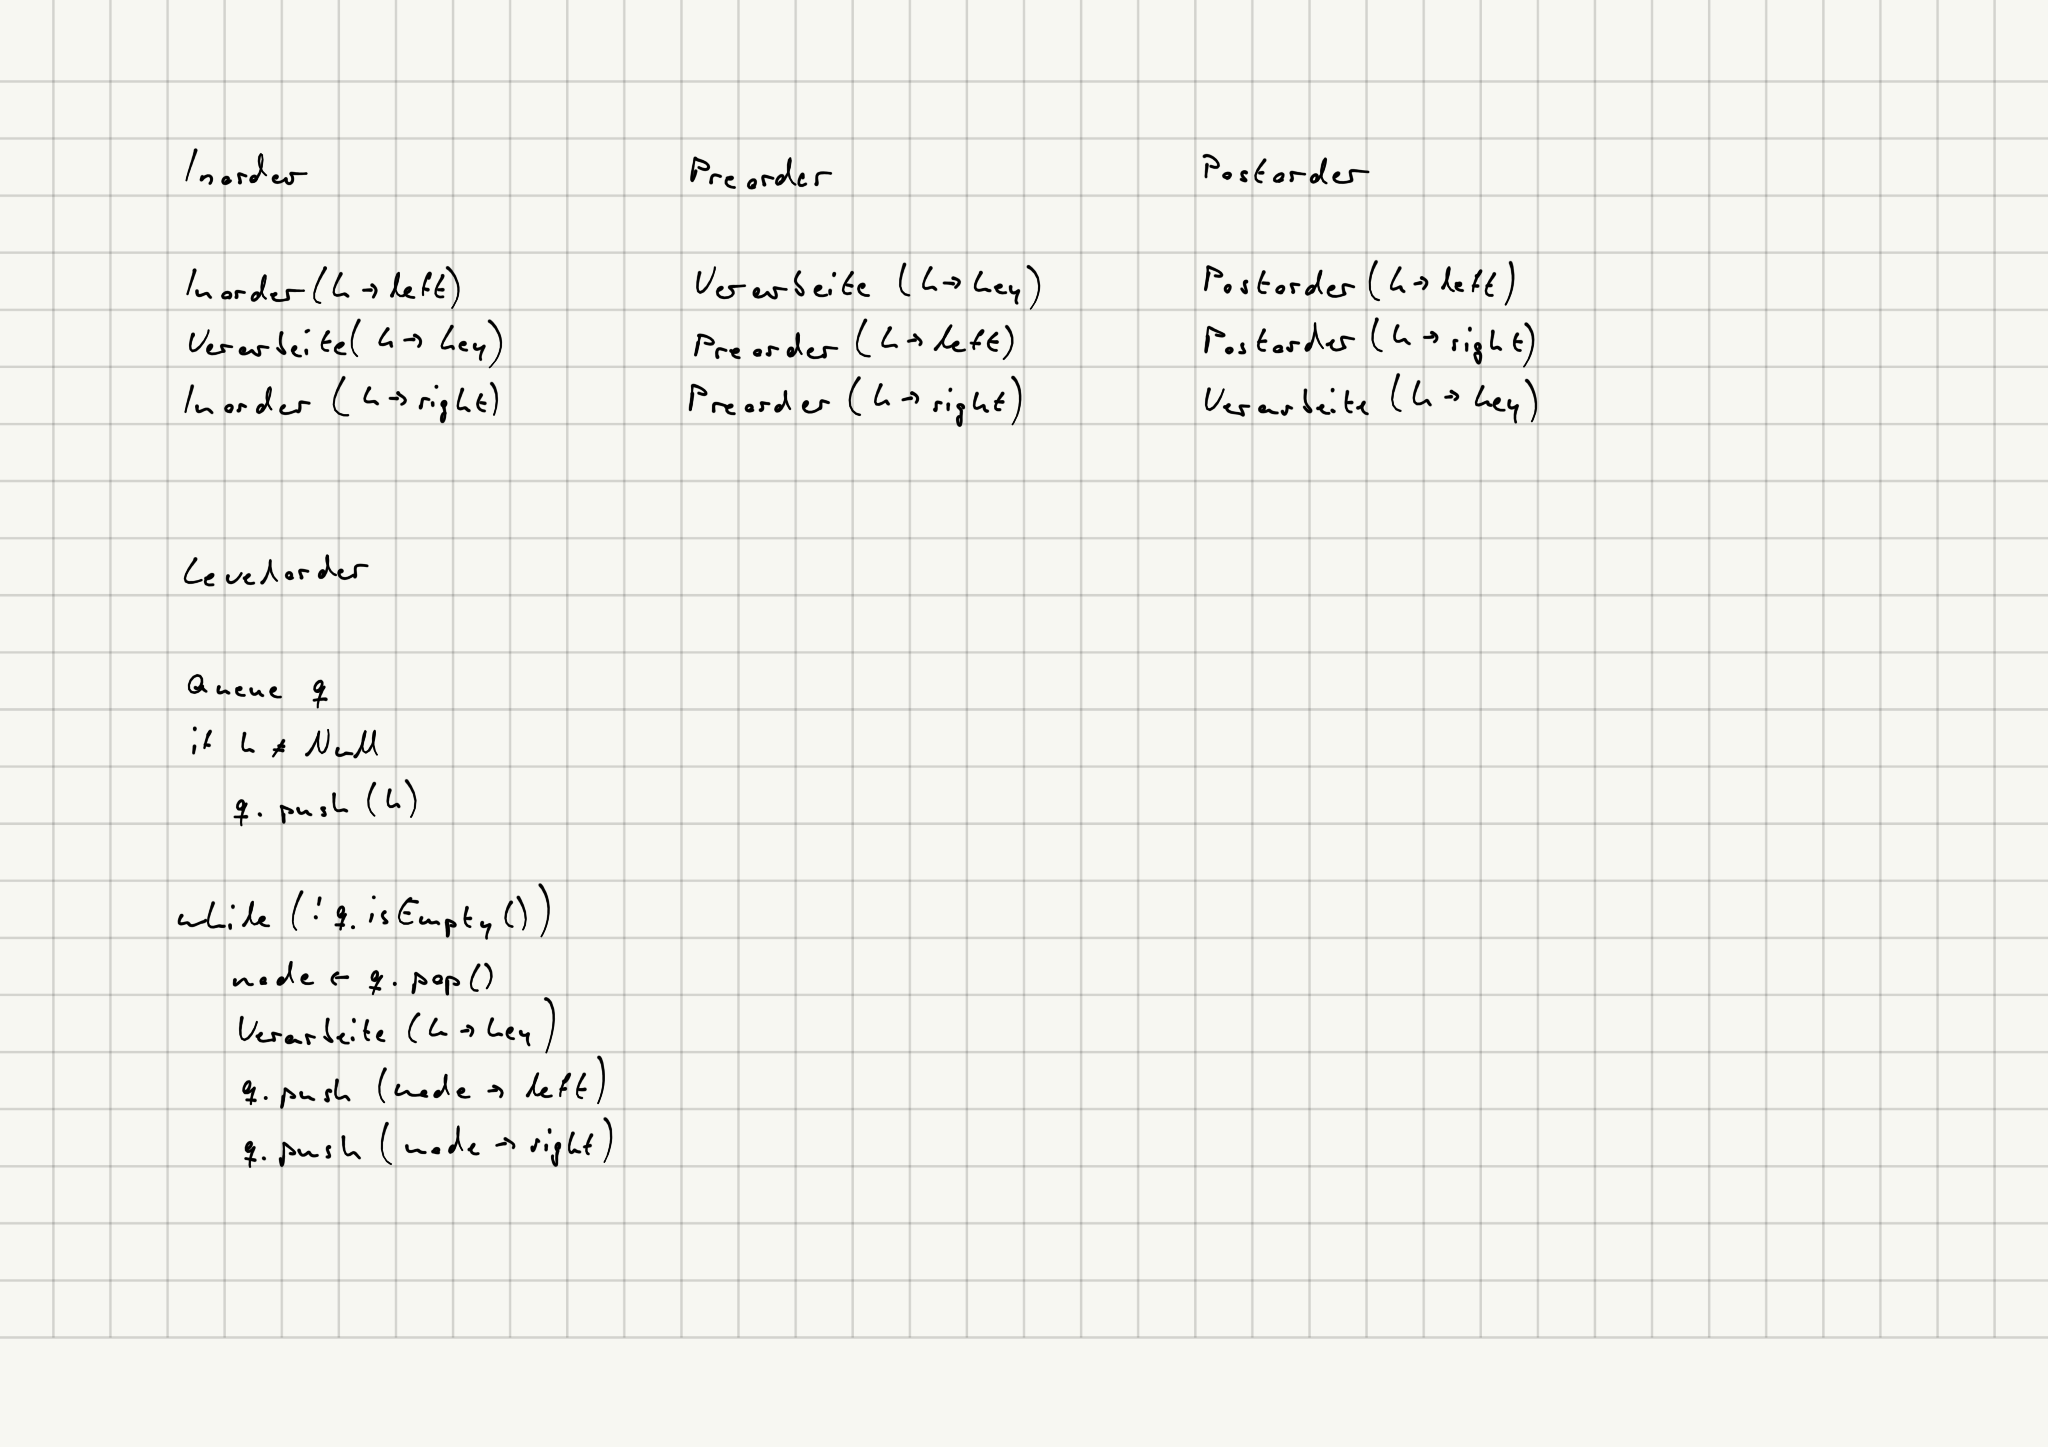 Inorder
Inorder(h→left)
Verarbeite(h→key)
Inorder (h→right)
Preorder
Verarbeite (h→key)
Preorder (h→left)
Preorder (h→right)
Postorder
Postorder (h→left)
Postorder (h→right)
Verarbeite (h→key)
Levelorder
Queue q
if h ≠ Null
q.push (h)
while (!q.isEmpty())
node ← q.pop()
Verarbeite (h→key)
q.push (node → left)
q.push (node → right)